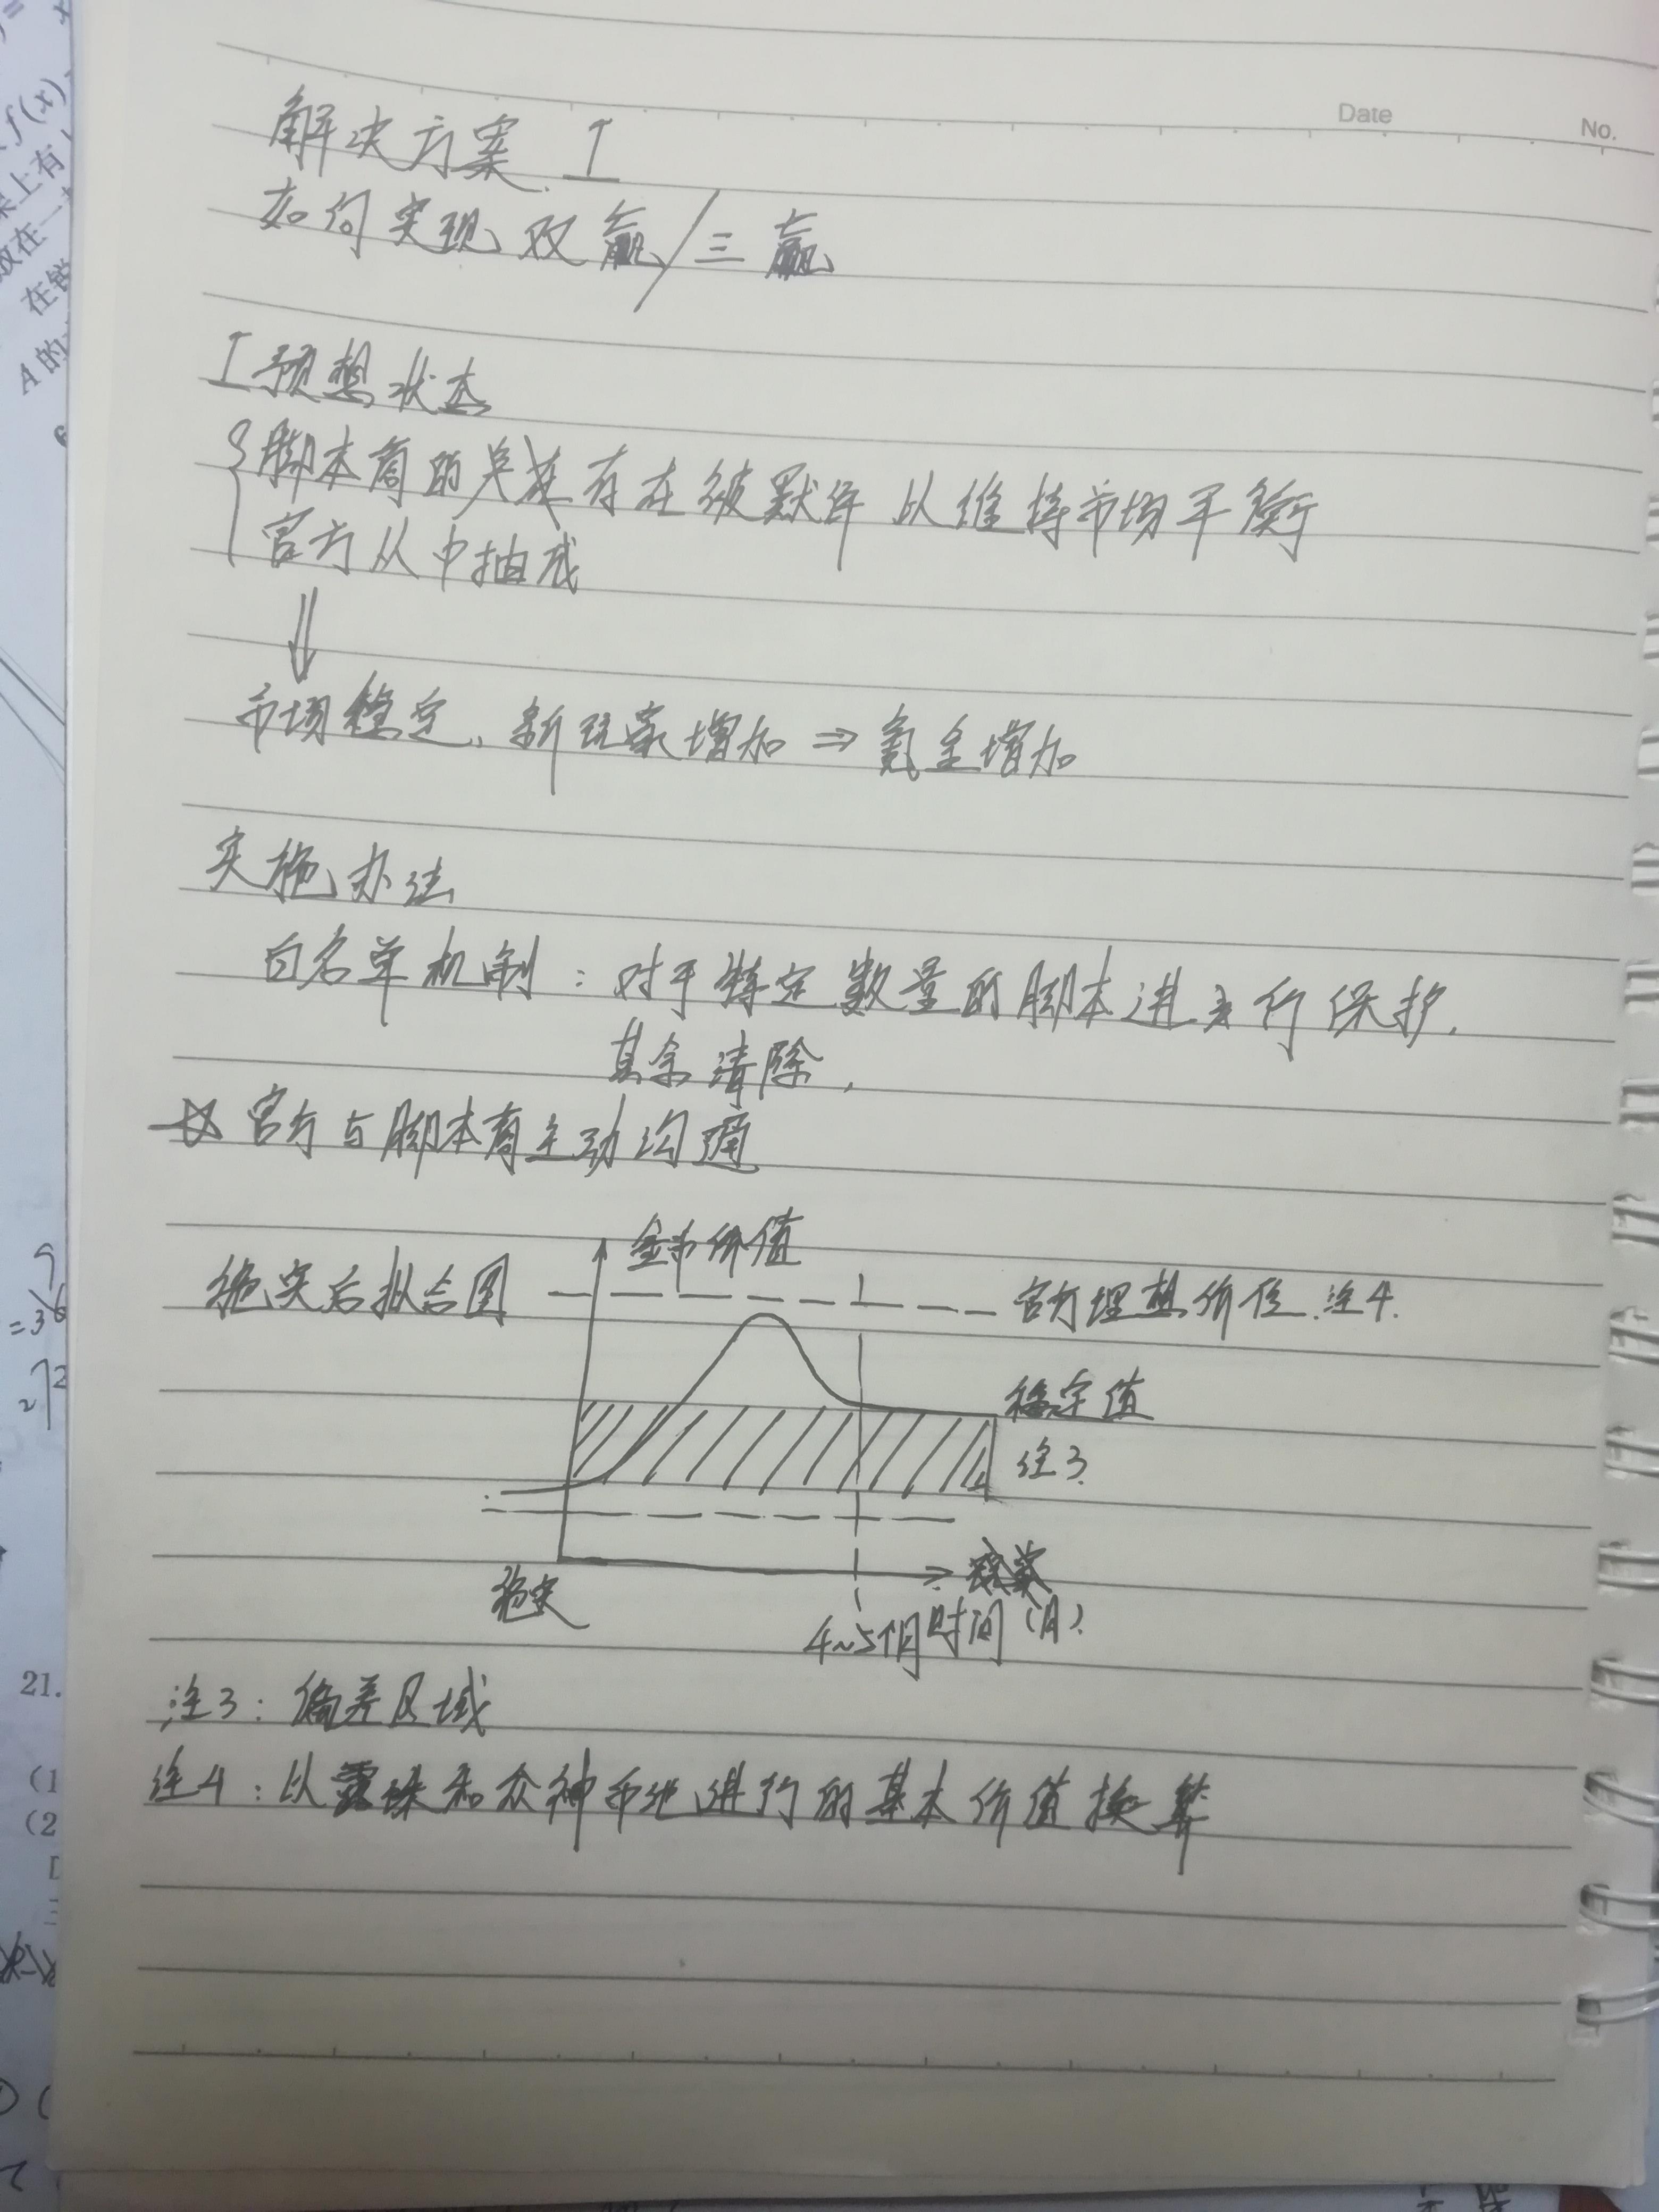 Date
No.
解决方案 I
如何实现双赢/三赢
I 预想状态
脚本商的存在被默许 以维持市场平衡
官方从中抽成
市场稳定、新玩家增加 ⇒ 氪金增加
实施办法
白名单机制：对于特定数量的脚本进行保护，
其余清除，
官方与脚本商主动沟通
金币价值
施实后拟合图
官方理想价位 注4.
稳定值
注3.
施实
4~5个月 时间（月）
注3：偏差区域
注4：以露珠和众神币进行的基本价值换算
f(x)
上有
放在一
在
A的
=36
21.
(1
(2